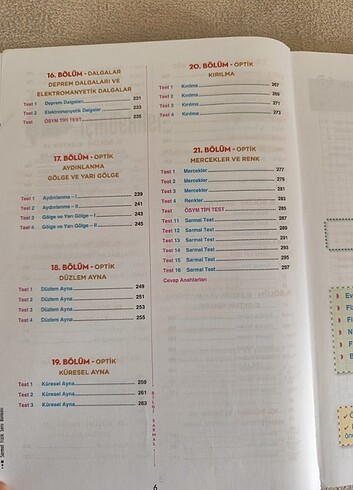 16. BÖLÜM - DALGALAR
DEPREM DALGALARI VE
ELEKTROMANYETİK DALGALAR
Test 1 Deprem Dalgaları 231
Test 2 Elektromanyetik Dalgalar 233
Test ÖSYM TİPİ TEST 235
17. BÖLÜM - OPTİK
AYDINLANMA
GÖLGE VE YARI GÖLGE
Test 1 Aydınlanma – I 239
Test 2 Aydınlanma – II 241
Test 3 Gölge ve Yarı Gölge – I 243
Test 4 Gölge ve Yarı Gölge – II 245
18. BÖLÜM - OPTİK
DÜZLEM AYNA
Test 1 Düzlem Ayna 249
Test 2 Düzlem Ayna 251
Test 3 Düzlem Ayna 253
Test 4 Düzlem Ayna 255
19. BÖLÜM - OPTİK
KÜRESEL AYNA
Test 1 Küresel Ayna 259
Test 2 Küresel Ayna 261
Test 3 Küresel Ayna 263
20. BÖLÜM - OPTİK
KIRILMA
Test 1 Kırılma 267
Test 2 Kırılma 269
Test 3 Kırılma 271
Test 4 Kırılma 273
21. BÖLÜM - OPTİK
MERCEKLER VE RENK
Test 1 Mercekler 277
Test 2 Mercekler 279
Test 3 Mercekler 281
Test 4 Renkler 283
Test ÖSYM TİPİ TEST 285
Test 11 Sarmal Test 287
Test 12 Sarmal Test 289
Test 13 Sarmal Test 291
Test 14 Sarmal Test 293
Test 15 Sarmal Test 295
Test 16 Sarmal Test 297
Cevap Anahtarları
BİLGİ SARMAL
6